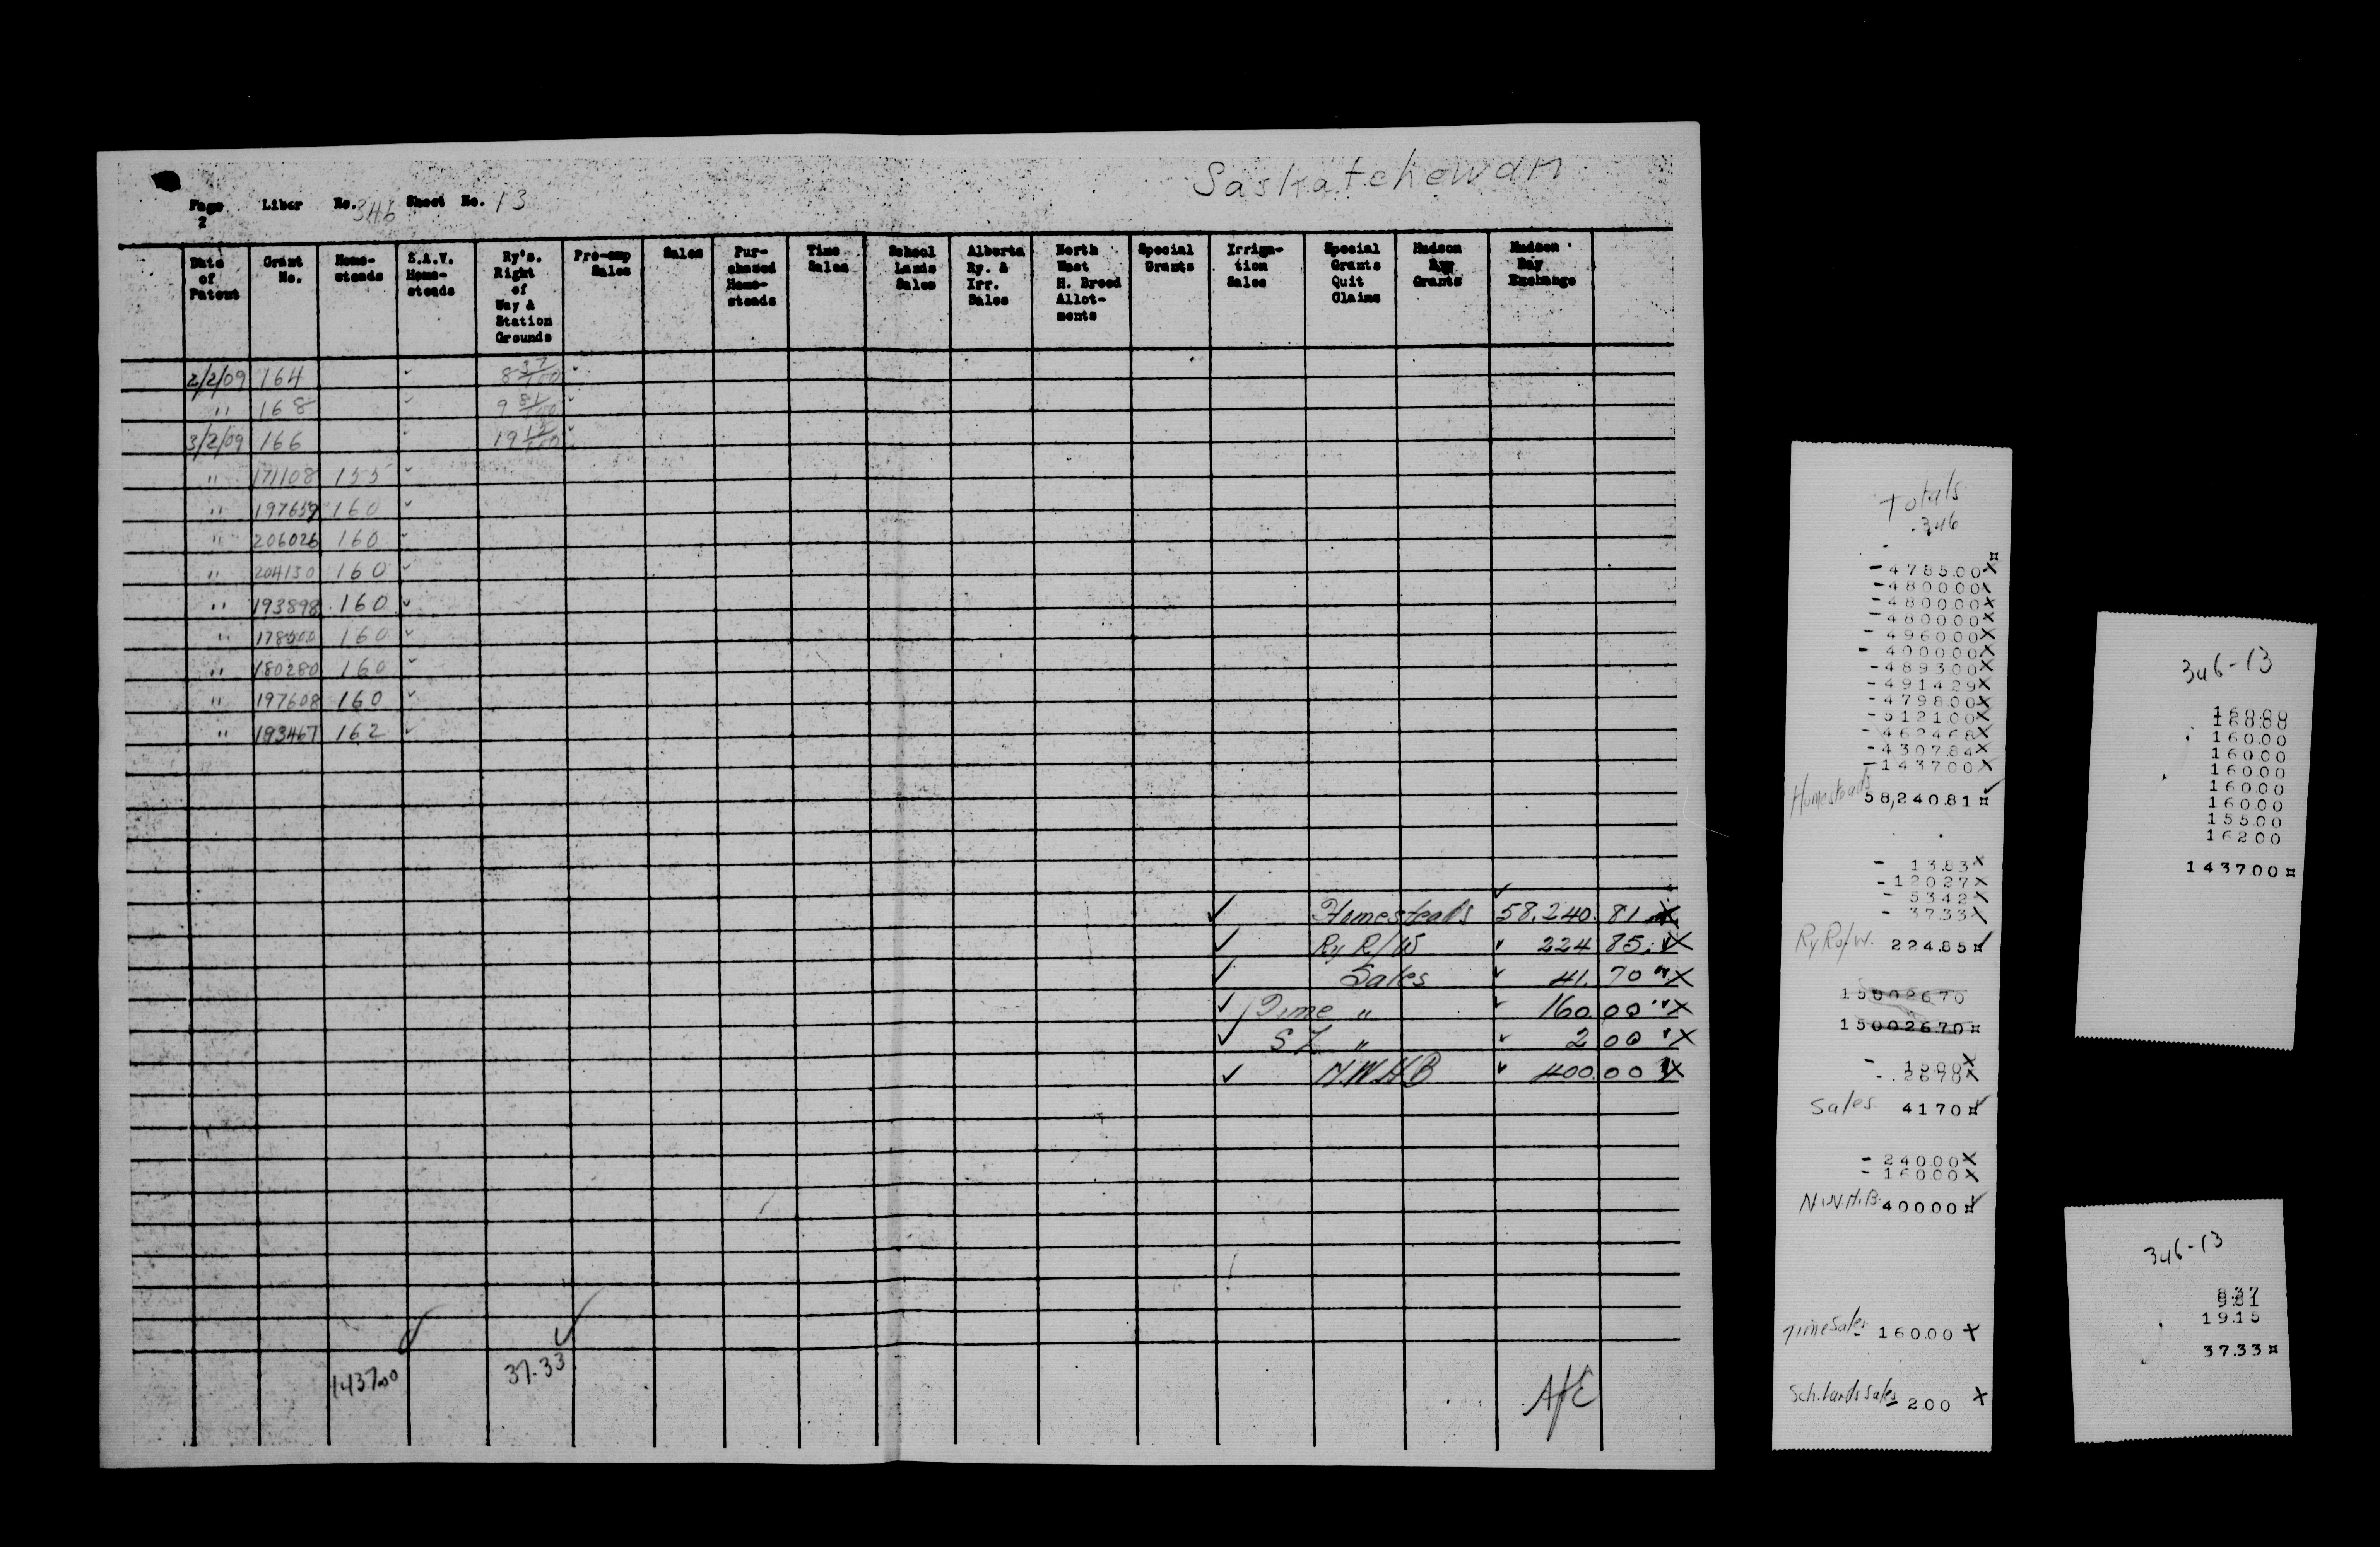 Saskatchewan
Page 2 Liber No. 346 Sheet No. 13
Date of Patent
Grant No.
Home-steads
S.A.V. Home-steads
Ry's. Right of Way & Station Grounds
Pre-emp Sales
Sales
Pur-chased Home-steads
Time Sales
School Lands Sales
Alberta Ry. & Irr. Sales
North West H. Breed Allot-ments
Special Grants
Irriga-tion Sales
Special Grants Quit Claims
Hudson Bay Grants
Hudson Bay Exchange
2/2/09 164 8 37/100
" 168 9 81/100
3/2/09 166 19 15/100
" 171108 155
" 197659 160
" 206026 160
" 204130 160
" 193898 160
" 160
" 180280 160
" 197608 160
" 193467 162
Homesteads 58,240.81 X
Ry R/W 224 85 X
Sales 41.70 " X
Time " 160.00 " X
S L " 2 00 " X
N.W.H.B 400.00 X
1437.00 37.33
Totals
346
- 4785.00 X
- 4800.00 X
- 4800.00 X
- 4800.00 X
- 4960.00 X
- 4000.00 X
- 4893.00 X
- 4914.29 X
- 4798.00 X
- 5121.00 X
- 4624.68 X
- 4307.84 X
- 1437.00 X
Homesteads 58,240.81 ¤
- 13.83 X
- 120.27 X
- 53.42 X
- 37.33 X
Ry R of W. 224.85 ¤
15002670
15002670 ¤
- 15.00 X
- 26.70 X
Sales 41.70 ¤
- 240.00 X
- 160.00 X
N.W.H.B. 400.00 ¤
Time Sales - 160.00 X
Sch. Lands Sales - 2.00 X
346-13
160.00
160.00
160.00
160.00
160.00
160.00
160.00
155.00
162.00
1437.00 ¤
346-13
8.37
9.81
19.15
37.33 ¤